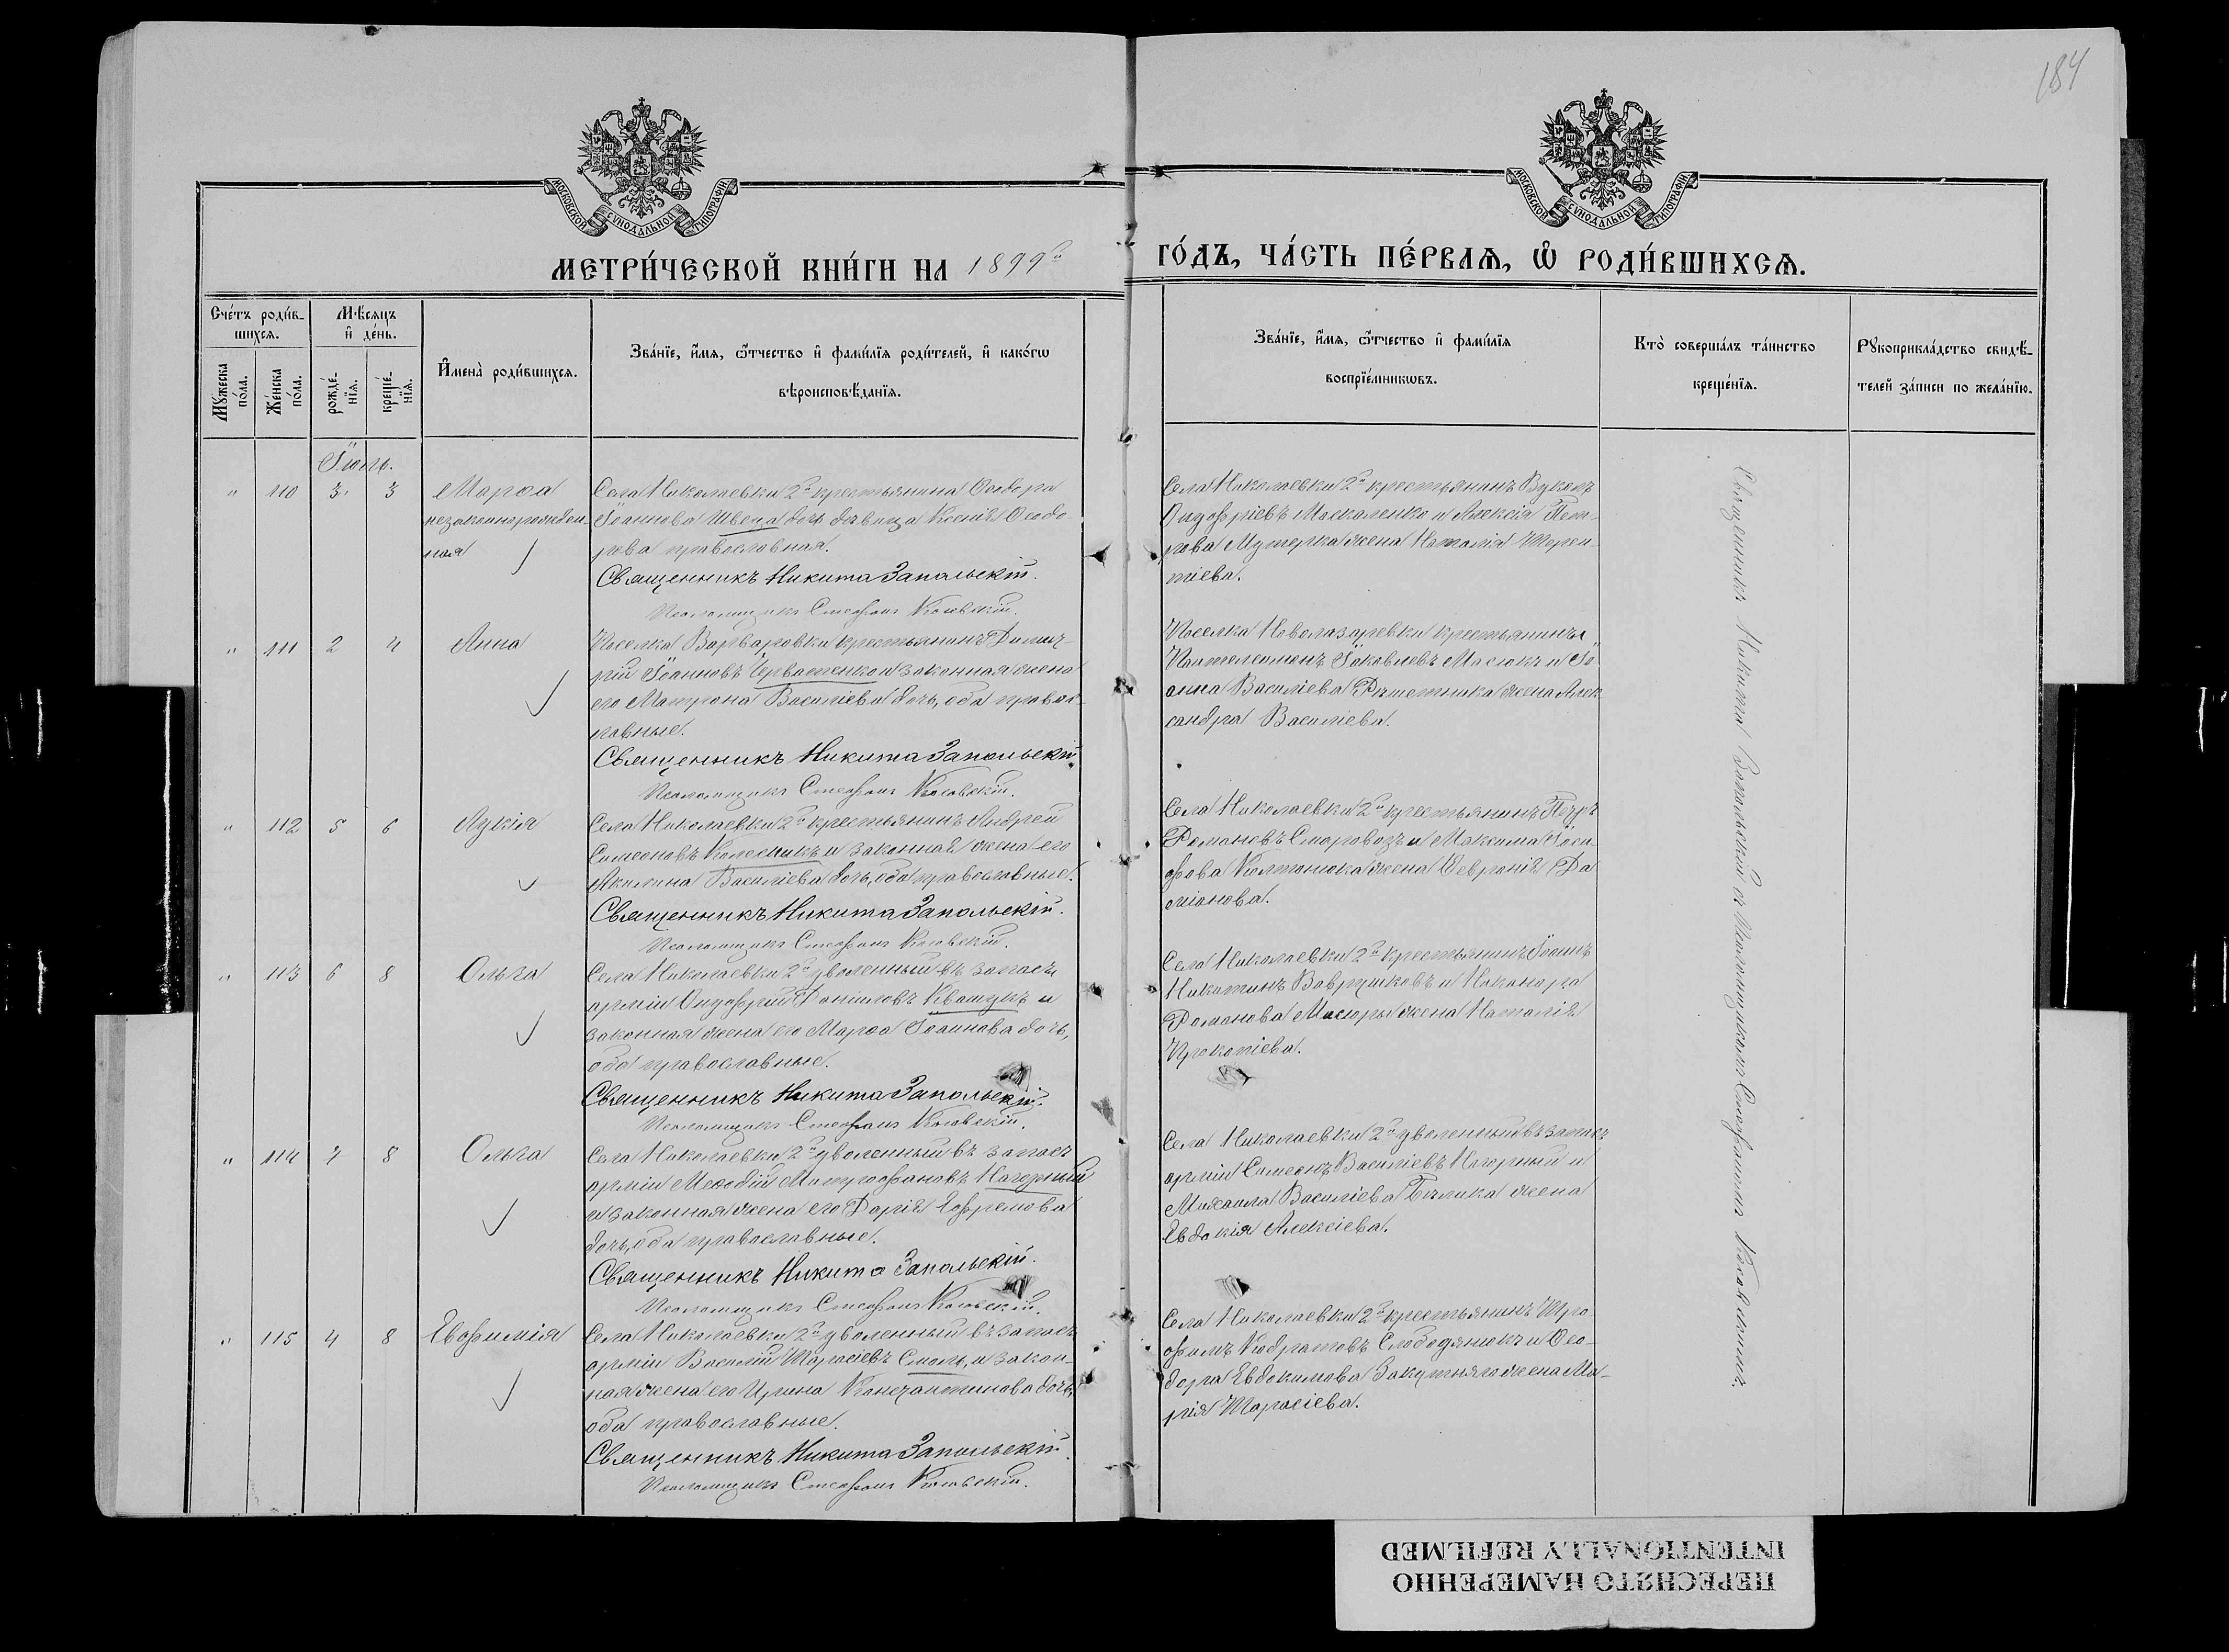 184
МОСКОВСКОЙ СѴНОДАЛЬНОЙ ТИПОГРАФІИ
МОСКОВСКОЙ СѴНОДАЛЬНОЙ ТИПОГРАФІИ
МЕТРИ́ЧЕСКОЙ КНИ́ГИ НА 1899й
ГО́ДЪ, ЧА́СТЬ ПЕ́РВАѦ, Ѿ РОДИ́ВШИХСѦ.
Сче́тъ роди́в-
шихсѧ.
Мꙋ́жеска
по́ла.
Же́нска
по́ла.
Мѣсѧцъ
и҆ де́нь.
рожде́-
нїѧ.
креще́-
нїѧ.
И҆мена̀ роди́вшихсѧ.
Зва́нїе, и҆́мѧ, ѻ҆́тчество и҆ фами́лїѧ роди́телей, и҆ како́гѡ
вѣроисповѣ́данїѧ.
Зва́нїе, и҆́мѧ, ѻ҆́тчество и҆ фами́лїѧ
воспрїе́мникѡвъ.
Кто̀ соверша́лъ та́инство
креще́нїѧ.
Рꙋкоприкла́дство свидѣ́-
телей за́писи по жела́нїю.
Іюль.
" 110 3. 3 Марѳа
незаконнорожден-
ная
Села Николаевки 2й крестьянина Ѳеодора
Іоаннова Швеца дочь девица Ксенія Ѳеодо-
рова православная.
Священникъ Никита Запольскій.
Псаломщикъ Стефанъ
Села Николаевки 2й крестьянинъ Вуколъ
Онуфріевъ Москаленко и Алексія Пет-
рова жена Наталія Терен-
тіева.
" 111 2 4 Анна
Поселка Варваровки крестьянинъ Димит-
рій Іоанновъ Червоненко и законная жена
его Матрона Василіева дочь, оба правос-
лавные.
Священникъ Никита Запольскій.
Псаломщикъ Стефанъ
Поселка Новолазаревки крестьянинъ
Пантелеимонъ Іаковлевъ Масюкъ и Іо-
анна Василіева Решетника жена Алек-
сандра Василіева.
" 112 5 6 Лукія
Села Николаевки 2й крестьянинъ Андрей
Симеоновъ Колесникъ и законная жена его
Акилина Василіева дочь, оба православные.
Священникъ Никита Запольскій.
Псаломщикъ Стефанъ
Села Николаевки 2й крестьянинъ Петръ
Романовъ Смаровозъ и Максима Іоси-
фова жена Февронія Да-
міанова.
" 113 6 8 Ольга
Села Николаевки 2й уволенный въ запасъ
арміи Онуфрій Даниловъ Квашукъ и
законная жена его Марѳа Іоаннова дочь,
оба православные.
Священникъ Никита Запольскій.
Псаломщикъ Стефанъ
Села Николаевки 2й крестьянинъ Іоаннъ
Никитинъ Вавришковъ и Никанора
Романова Мисюры жена Наталія
Прокопіева.
" 114 7 8 Ольга
Села Николаевки 2й уволенный въ запасъ
арміи Меѳодій Митрофановъ Нагорный
и законная жена его Дарія Ефремова
дочь, оба православные.
Священникъ Никита Запольскій.
Псаломщикъ Стефанъ
Села Николаевки 2й уволенный въ запасъ
арміи Симеонъ Василіевъ Нагорный и
Михаила Василіева Билика жена
Евдокія Алексіева.
" 115 4 8 Евфимія
Села Николаевки 2й уволенный въ запасъ
арміи Василій Тарасіевъ Смоль, и закон-
ная жена его Ирина Константинова дочь,
оба православные.
Священникъ Никита Запольскій.
Псаломщикъ Стефанъ
Села Николаевки 2й крестьянинъ Тро-
фимъ Кодратовъ Слободянюкъ и Ѳео-
дора Евдокимова Закутняго жена Ма-
рія Тарасіева.
Священникъ Никита Запольскій съ Псаломщикомъ Стефаномъ
ПЕРЕСНЯТО НАМЕРЕННО
INTENTIONALLY REFILMED